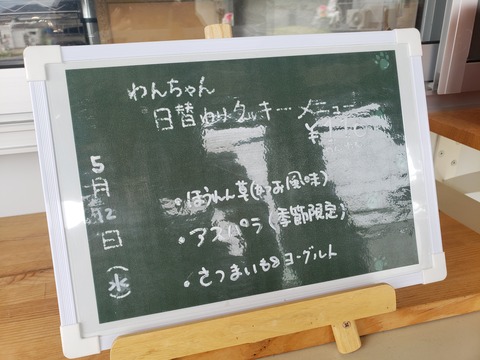 わんちゃん
日替わりクッキーメニュー
5月12日(水)
・ほうれん草(かつお風味)
・アスパラ(季節限定)
・さつまいもヨーグルト